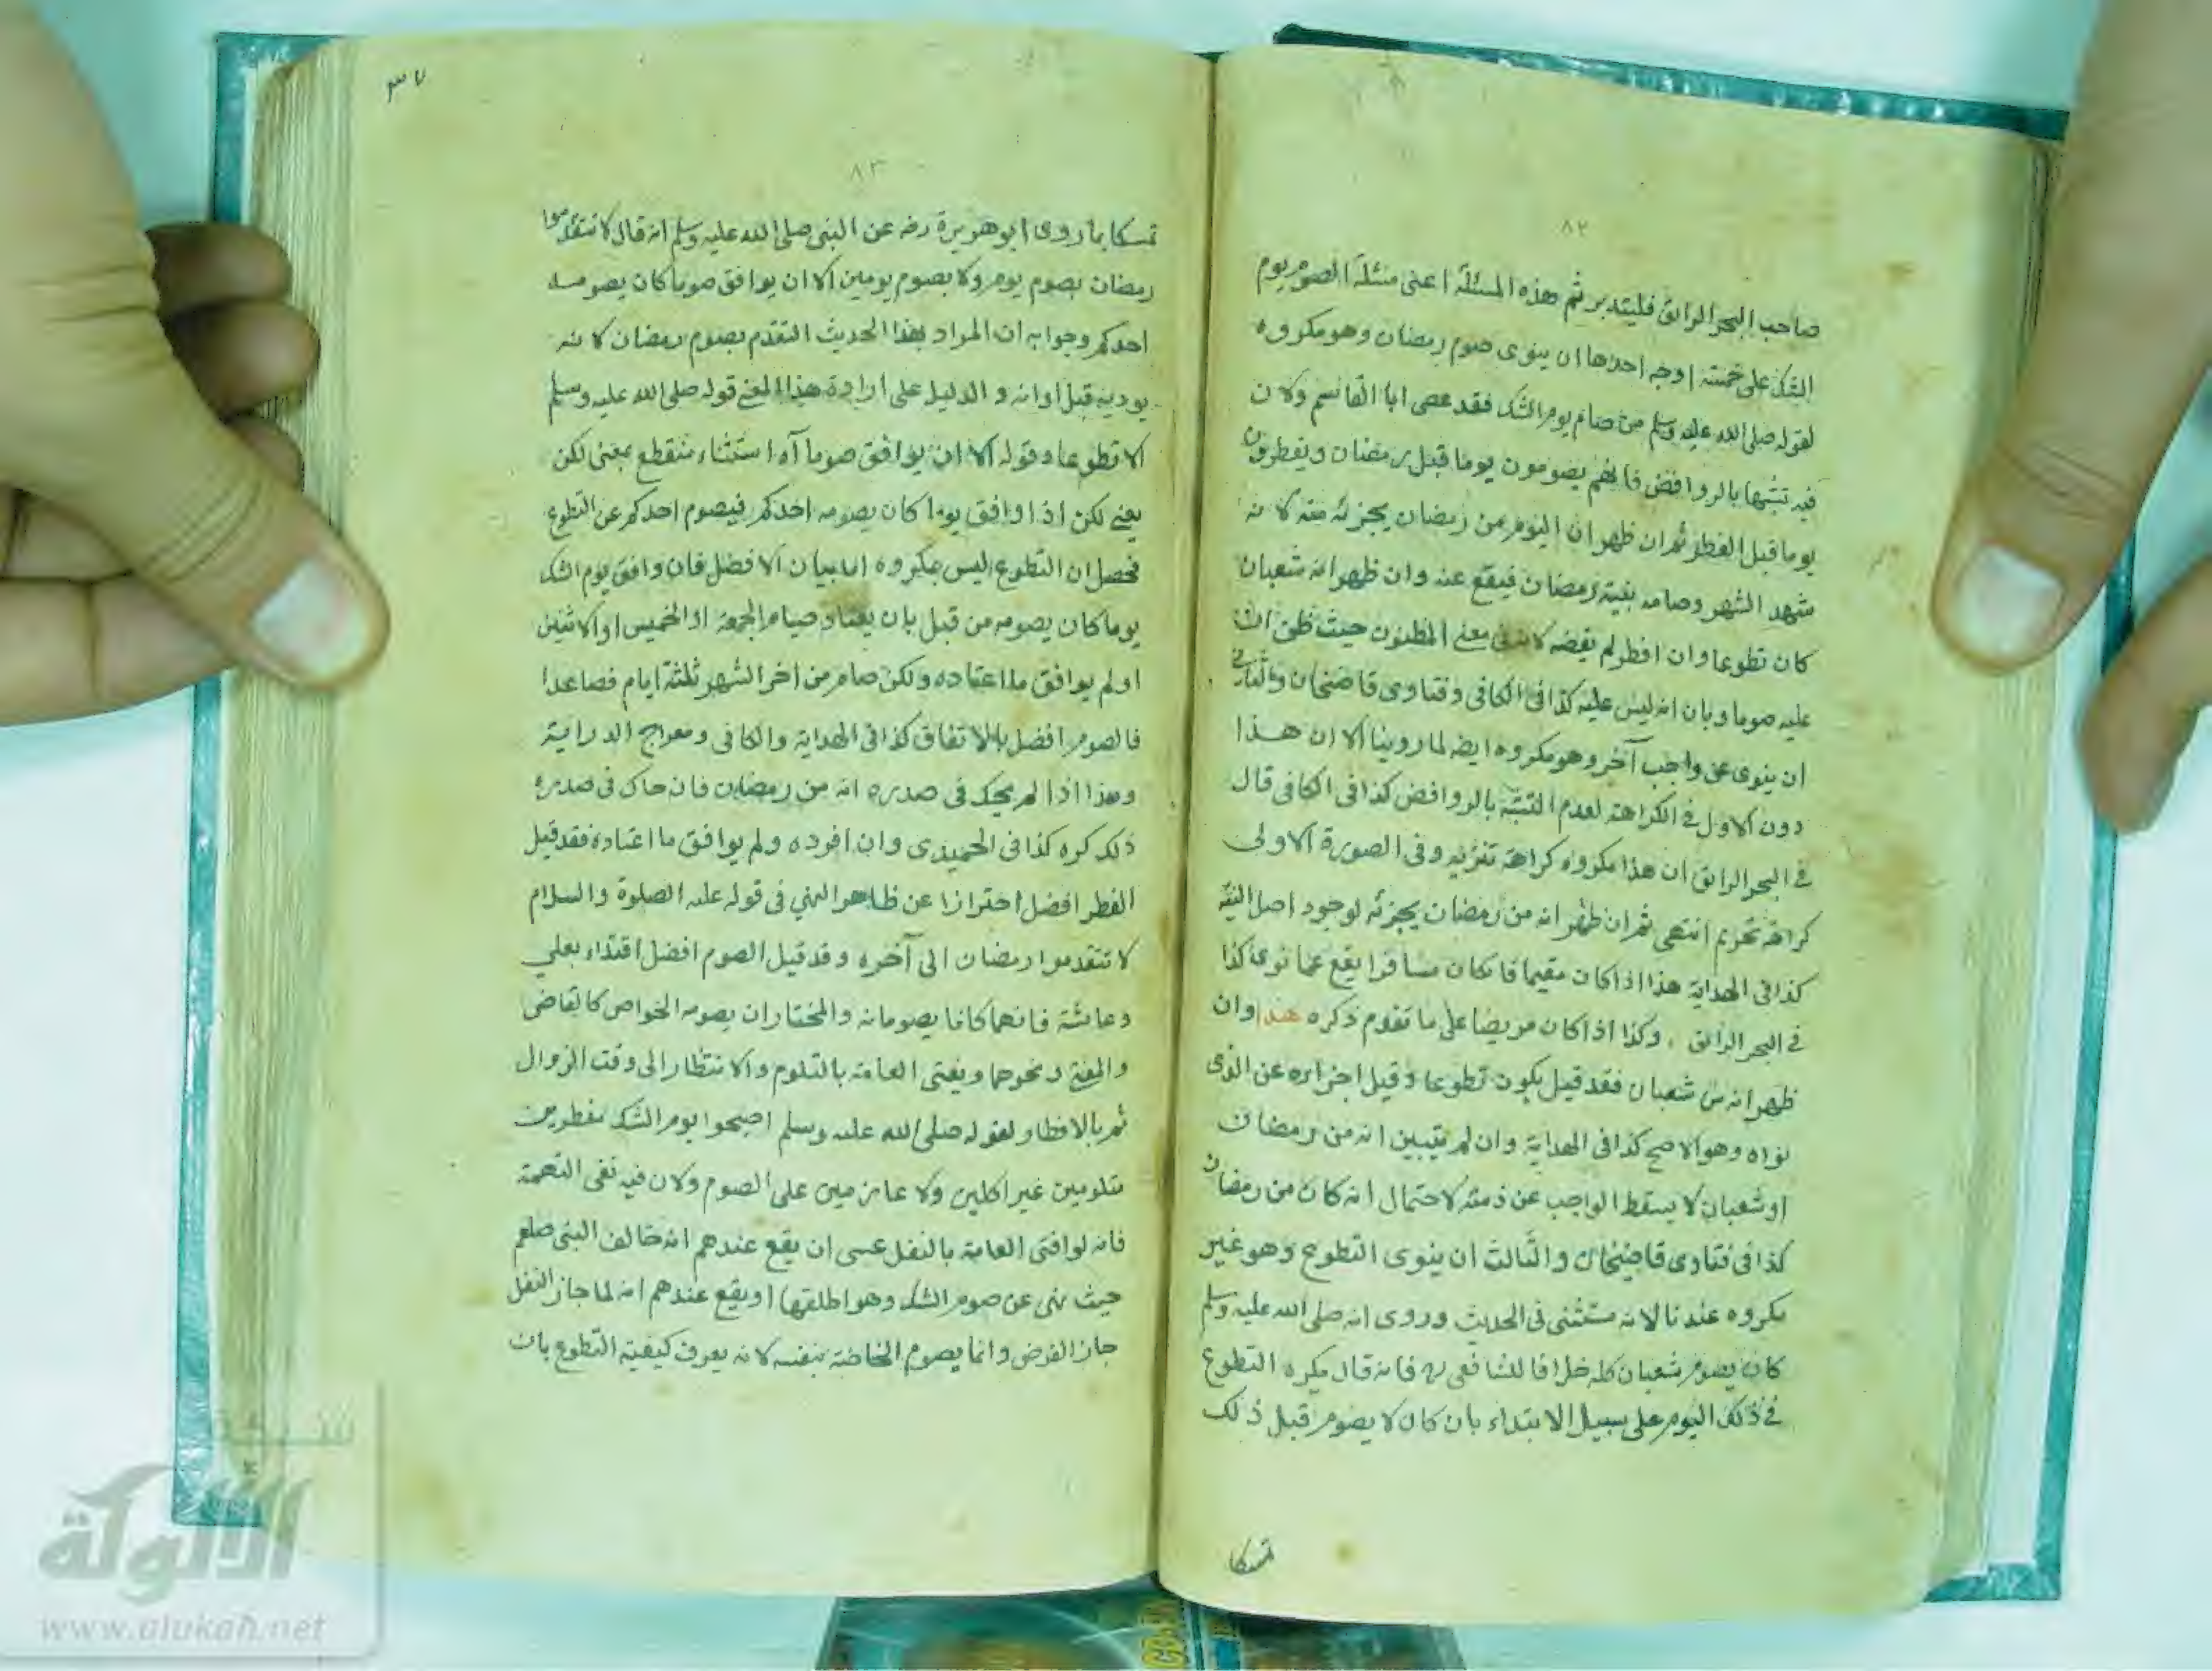 ٨٢
صاحب البحر الرائق فليتدبر ثم هذه المسئلة اعنى مسئلة الصوم يوم
الشك على خمسة اوجه احدها ان ينوى صوم رمضان وهو مكروه
لقوله صلى الله عليه وسلم من صام يوم الشك فقد عصى ابا القاسم ولان
فيه تشبها بالروافض فانهم يصومون يوما قبل رمضان ويفطرون
يوما قبل الفطر ثم ان ظهر ان اليوم من رمضان يجزئه عنه لانه
شهد الشهر وصامه بنية رمضان فيقع عنه وان ظهر انه شعبان
كان تطوعا وان افطر لم يقضه لانه فى معنى المظنون حيث ظن ان
عليه صوما وبان انه ليس عليه كذا فى الكافى وفتاوى قاضيخان والثانى
ان ينوى عن واجب آخر وهو مكروه ايضه لما روينا الا ان هذا
دون الاول فى الكراهة لعدم التشبه بالروافض كذا فى الكافى قال
فى البحر الرائق ان هذا مكروه كراهة تنزيه وفى الصورة الاولى
كراهة تحريم انتهى ثم ان ظهر انه من رمضان يجزئه لوجود اصل النية
كذا فى الهداية هذا اذا كان مقيما فان كان مسافرا يقع عما نوى كذا
فى البحر الرائق وكذا اذا كان مريضا على ما تقدم ذكره هذا وان
ظهر انه من شعبان فقد قيل يكون تطوعا وقيل اجزاءه عن الذى
نواه وهو الاصح كذا فى الهداية وان لم يتبين انه من رمضان
او شعبان لا يسقط الواجب عن ذمته لاحتمال انه كان من رمضان
كذا فى فتاوى قاضيخان والثالث ان ينوى التطوع وهو غير
مكروه عندنا لانه مستثنى فى الحديث وروى انه صلى الله عليه وسلم
كان يصوم شعبان كله خلافا للشافعى ره فانه قال يكره التطوع
فى ذلك اليوم على سبيل الابتداء بان كان لا يصوم قبل ذلك
تمسكا
٣٧
٨٣
تمسكا بما روى ابو هريرة رضه عن النبى صلى الله عليه وسلم انه قال لا تتقدموا
رمضان بصوم يوم ولا بصوم يومين الا ان يوافق صوما كان يصومه
احدكم وجوابه ان المراد بهذا الحديث التقدم بصوم رمضان لانه
يوديه قبل اوانه و الدليل على ارادة هذا المعنى قوله صلى الله عليه وسلم
الا تطوعا وقوله الا ان يوافق صوما آه استثناء منقطع بمعنى لكن
يعنى لكن اذا وافق يوما كان يصومه احدكم فيصوم احدكم عن التطوع
فحصل ان التطوع ليس بمكروه اما بيان الافضل فان وافق يوم الشك
يوما كان يصومه من قبل بان يعتاد صيام الجمعة او الخميس او الاثنين
او لم يوافق ما اعتاده ولكن صام من اخر الشهر ثلثة ايام فصاعدا
فالصوم افضل بالاتفاق كذا فى الهداية والكافى ومعراج الدراية
وهذا اذا لم يحك فى صدره انه من رمضان فان حاك فى صدره
ذلك كره كذا فى الحميدى وان افرده ولم يوافق ما اعتاده فقد قيل
الفطر افضل احترازا عن ظاهر النهى فى قوله عليه الصلوة والسلام
لا تتقدموا رمضان الى آخره وقد قيل الصوم افضل اقتداء بعلي
وعائشة فانهما كانا يصومانه والمختار ان يصومه الخواص كالقاضى
والمفتى ونحوهما ويفتى العامة بالتلوم والانتظار الى وقت الزوال
ثم بالافطار لقوله صلى الله عليه وسلم اصبحوا يوم الشك مفطرين
متلومين غير اكلين ولا عازمين على الصوم ولان فيه نفى التهمة
فانه لو افتى العامة بالنفل عسى ان يقع عندهم انه خالف النبى صلعم
حيث نهى عن صوم الشك وهو اطلقها او يقع عندهم انه لما جاز النفل
جاز الفرض وانما يصوم الخاصة بنفسه لانه يعرف كيفية التطوع بان
شبكة
الألوكة
www.alukah.net